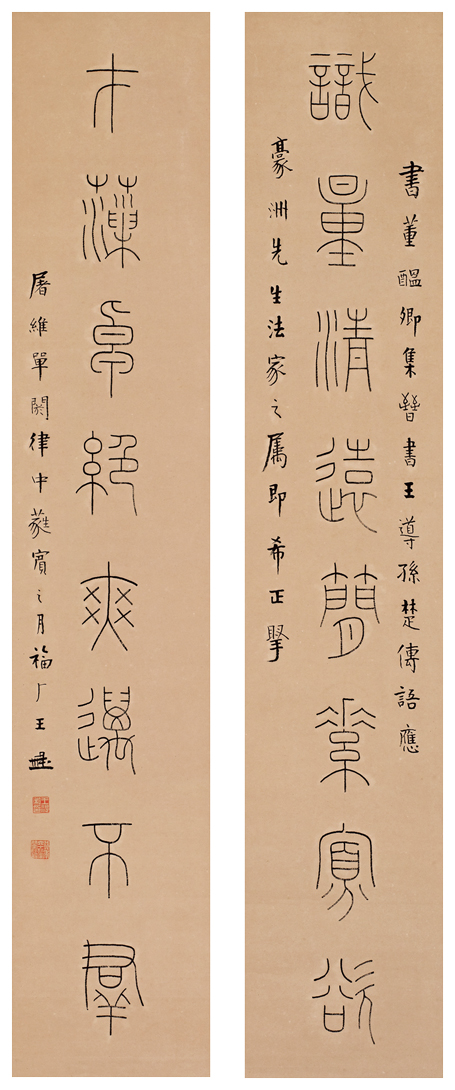 書董醞卿集晉書王導孫楚傳語應
識量清遠簡素寡欲
豪洲先生法家之属即希正掔
才藻卓絕爽邁不群
屠維單閼律中蕤賓之月福厂王禔